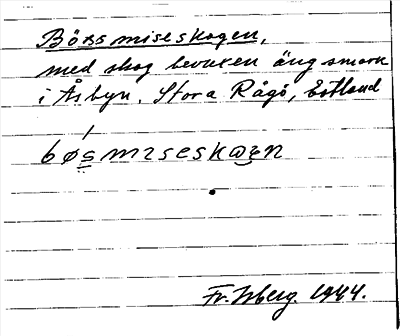 Bössmiseskogen,
med skog bevuxen ängsmark
i Åsbyn. Stora Rågö, Estland
bøsmɪseskɷgɛn
Fr. Isberg. 1944.